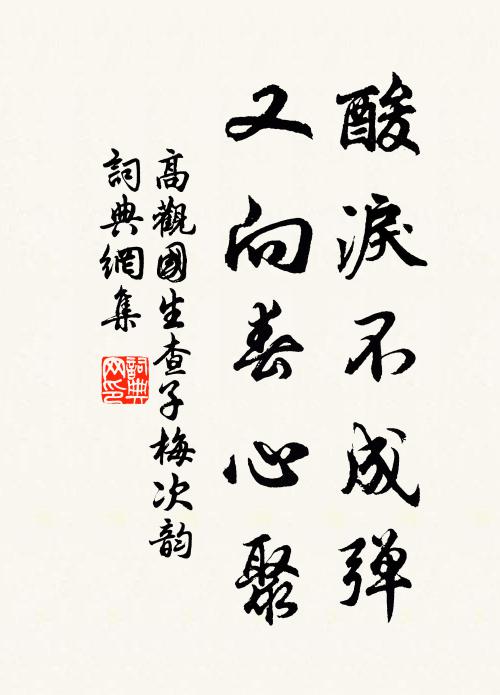 酸淚不成彈
又向春心聚
高觀國生查子梅次韵
詞典網集
詞典
网印